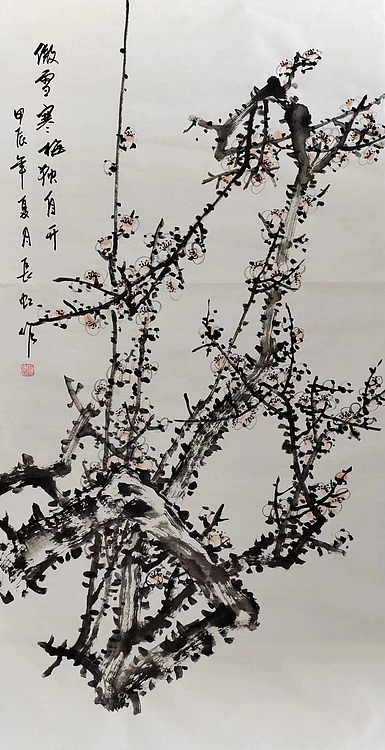 傲雪寒梅独自开
甲辰年夏月長虹作